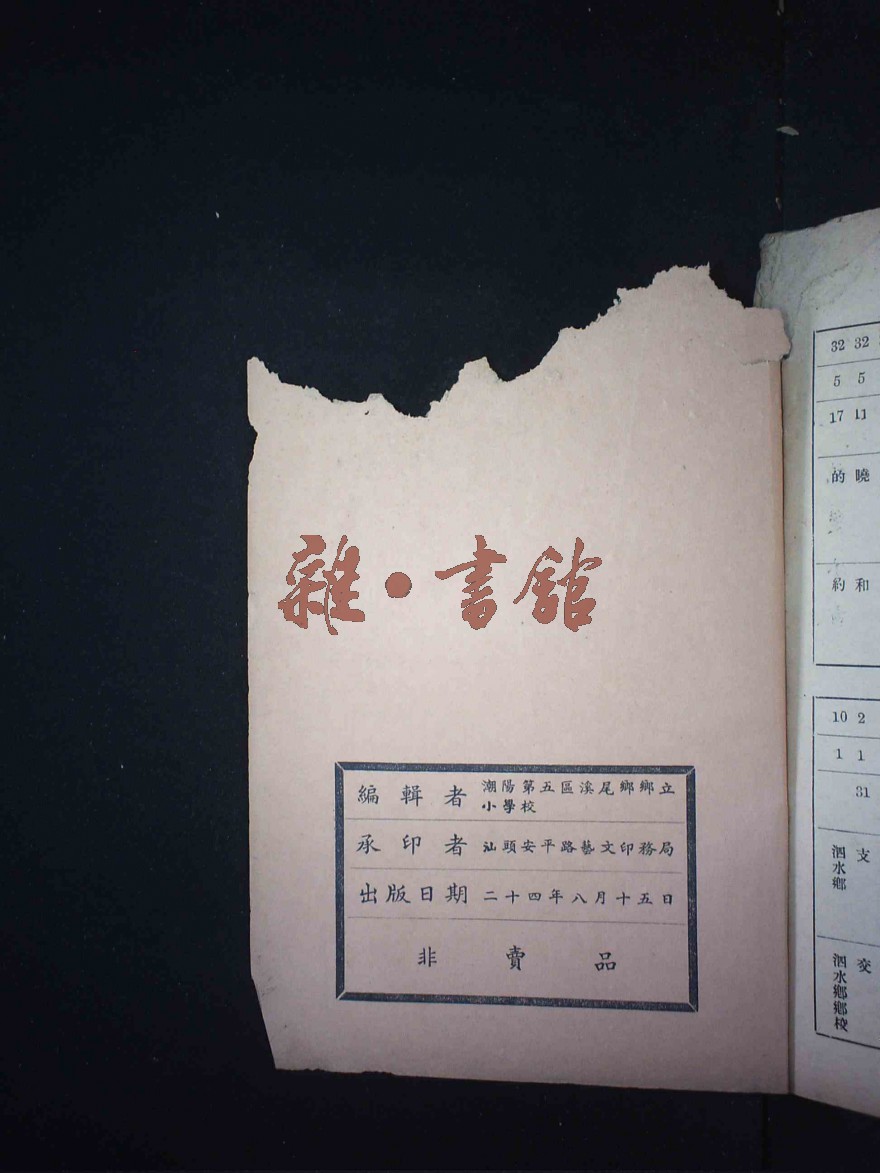 雜·書館
編輯者 潮陽第五區溪尾鄉鄉立
小學校
承印者 汕頭安平路藝文印務局
出版日期 二十四年八月十五日
非賣品
32 32
5 5
17 11
的 嘵
約 和
10 2
1 1
31
泗水鄉 支
泗水鄉鄉校 交